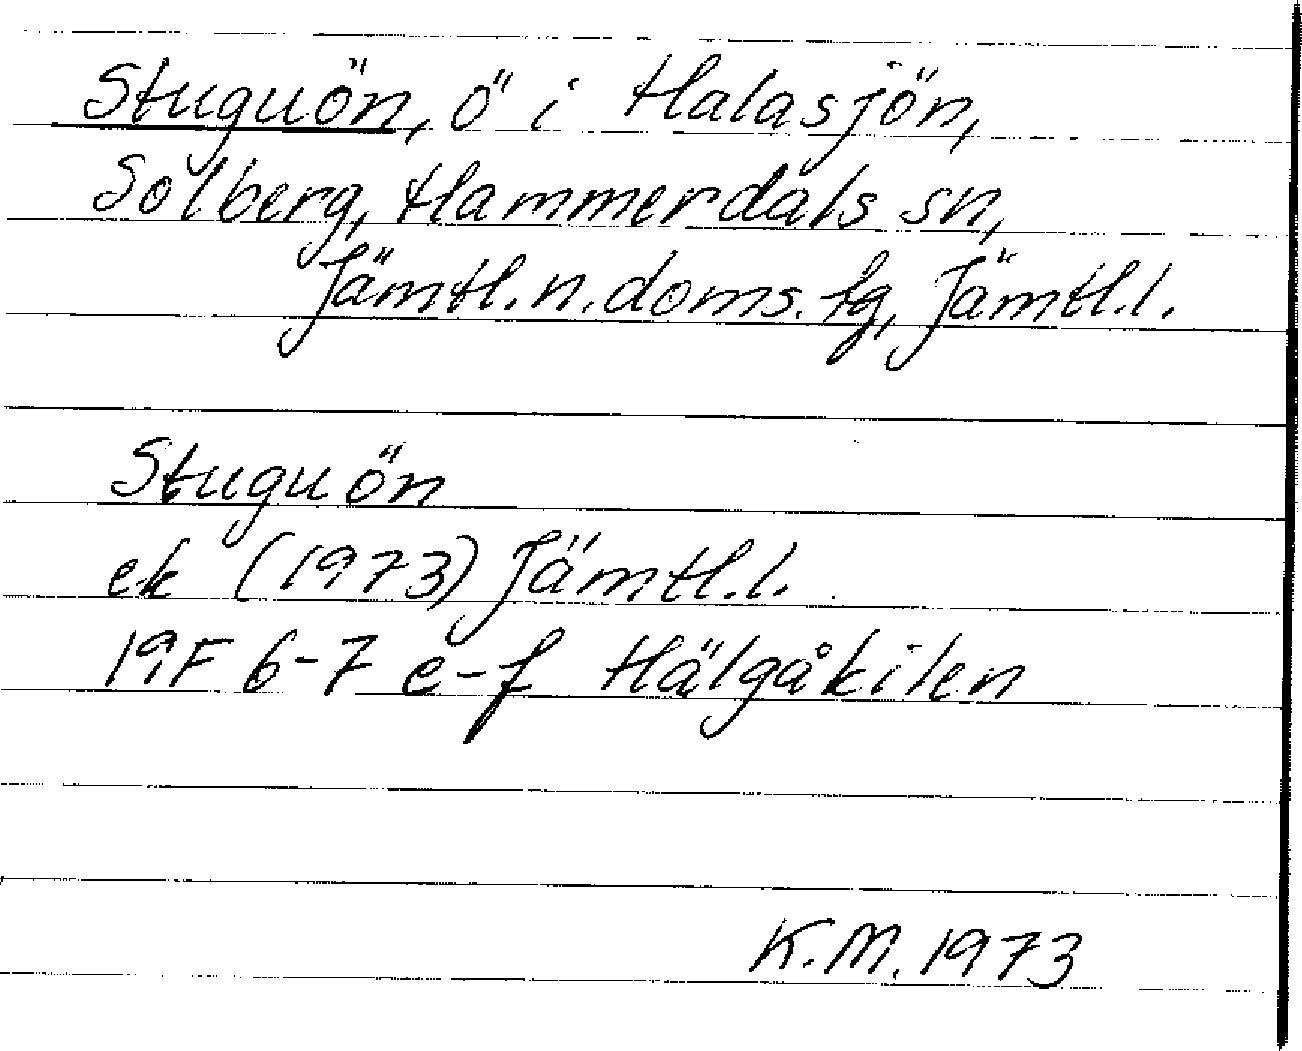 Stuguön, ö i Halasjön,
Solberg, Hammerdals sn,
Jämtl.n.doms.fg, Jämtl.l.
Stuguön
ek (1973) Jämtl.l.
19F 6-7 e-f Hälgåkilen
K.M. 1973